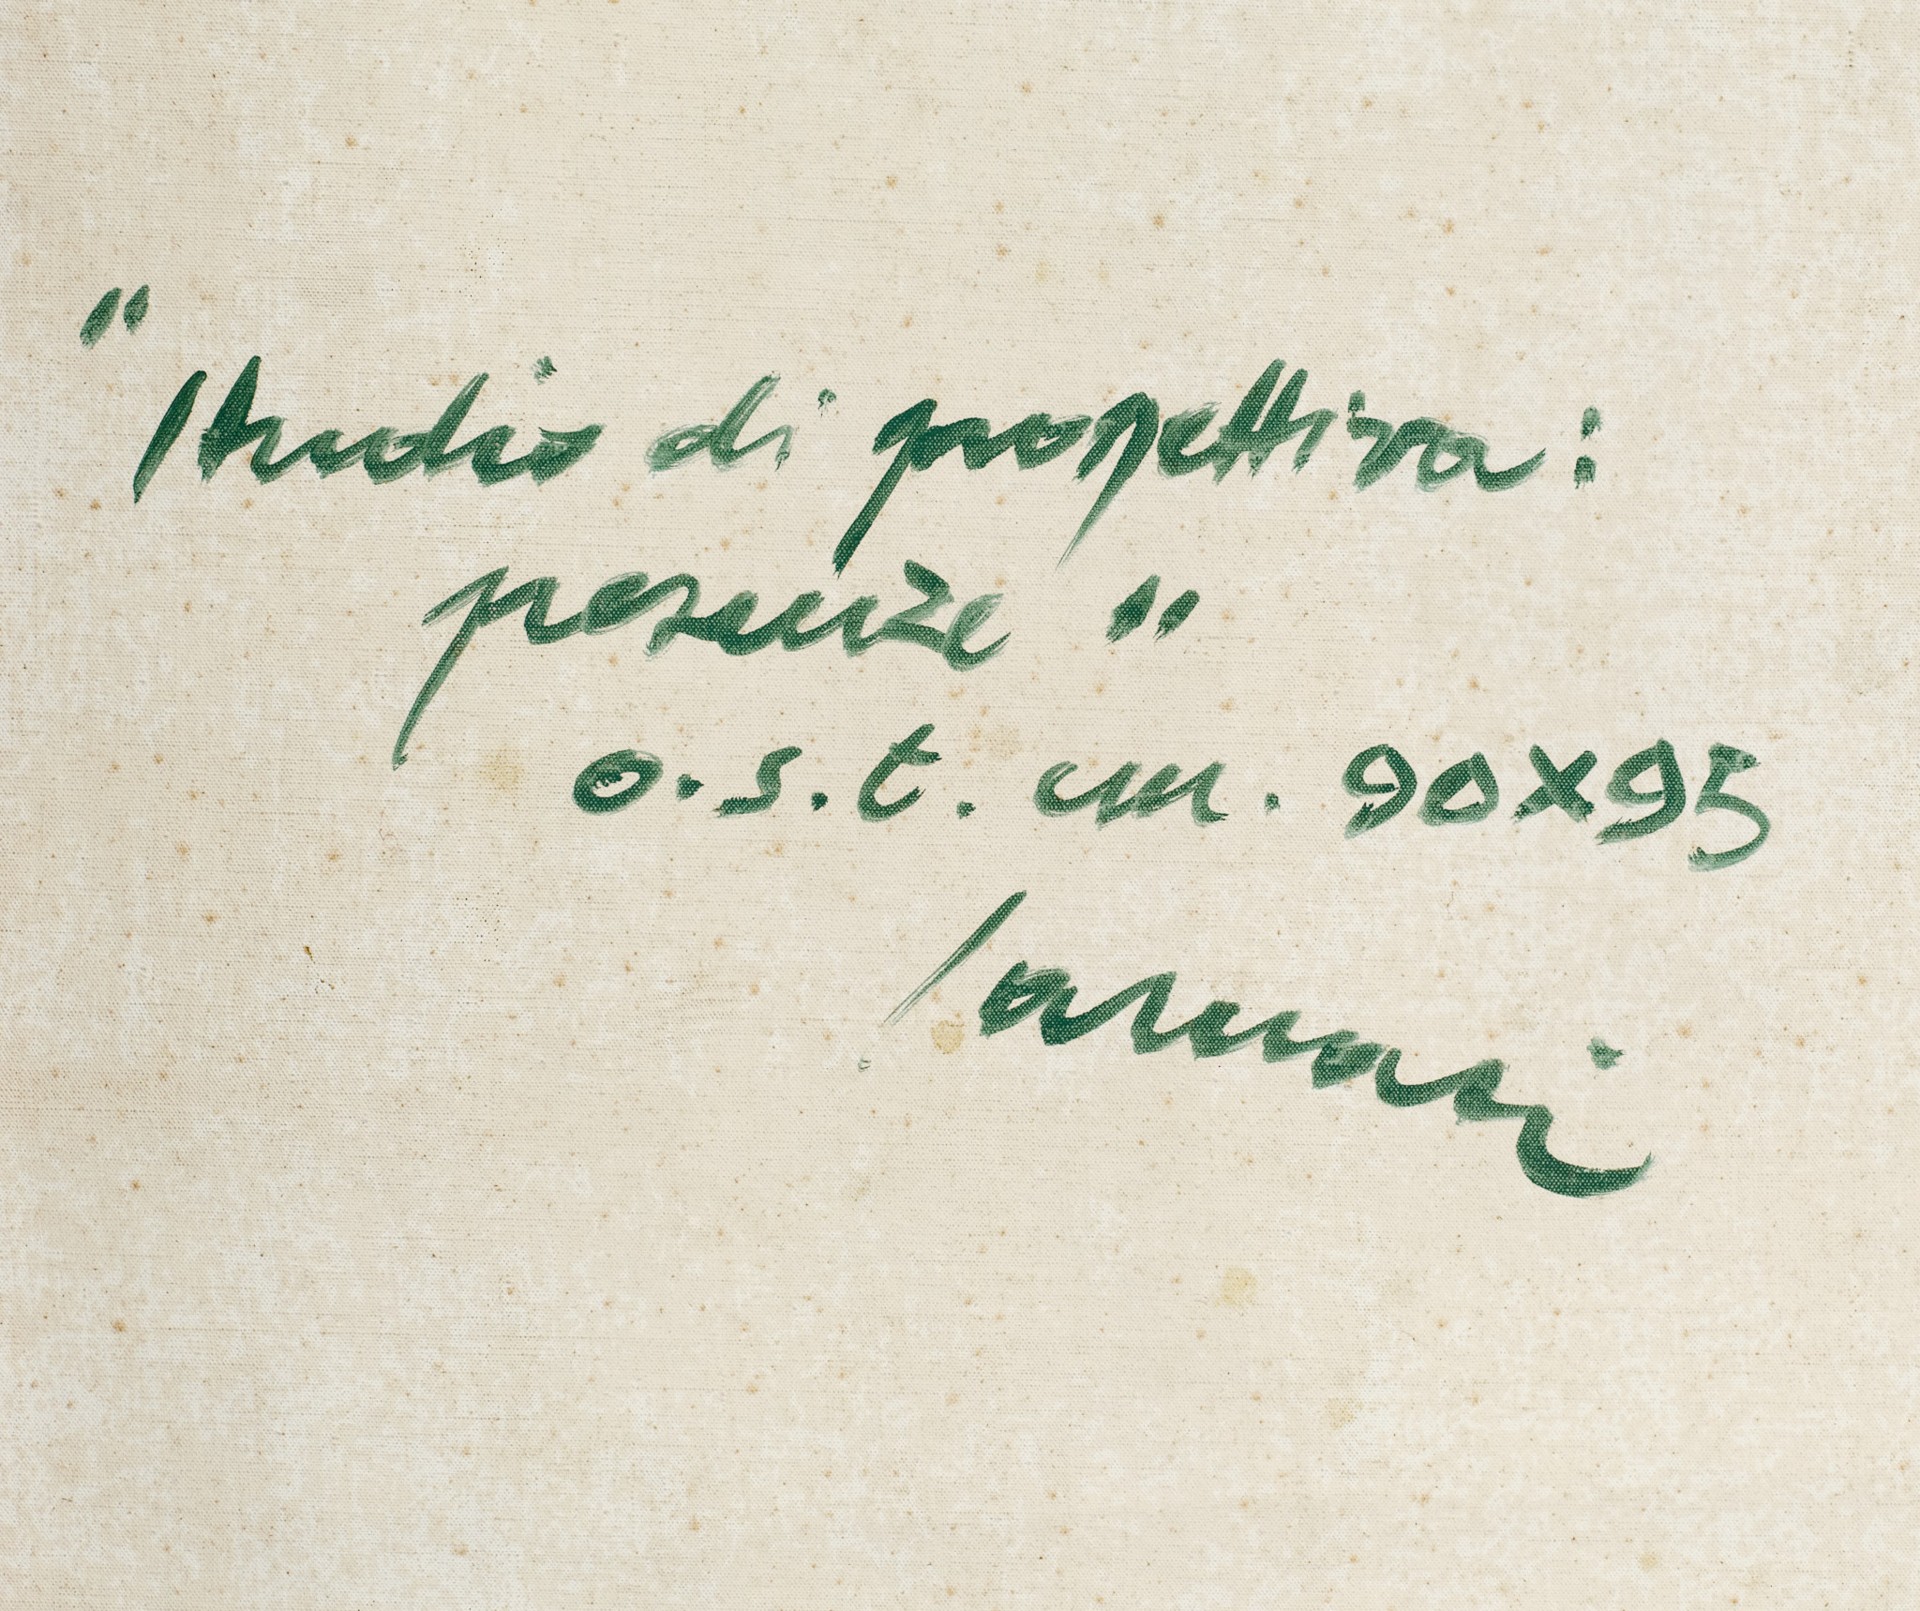 "Studio di prospettiva:
presenze"
o.s.t. cm. 90x95